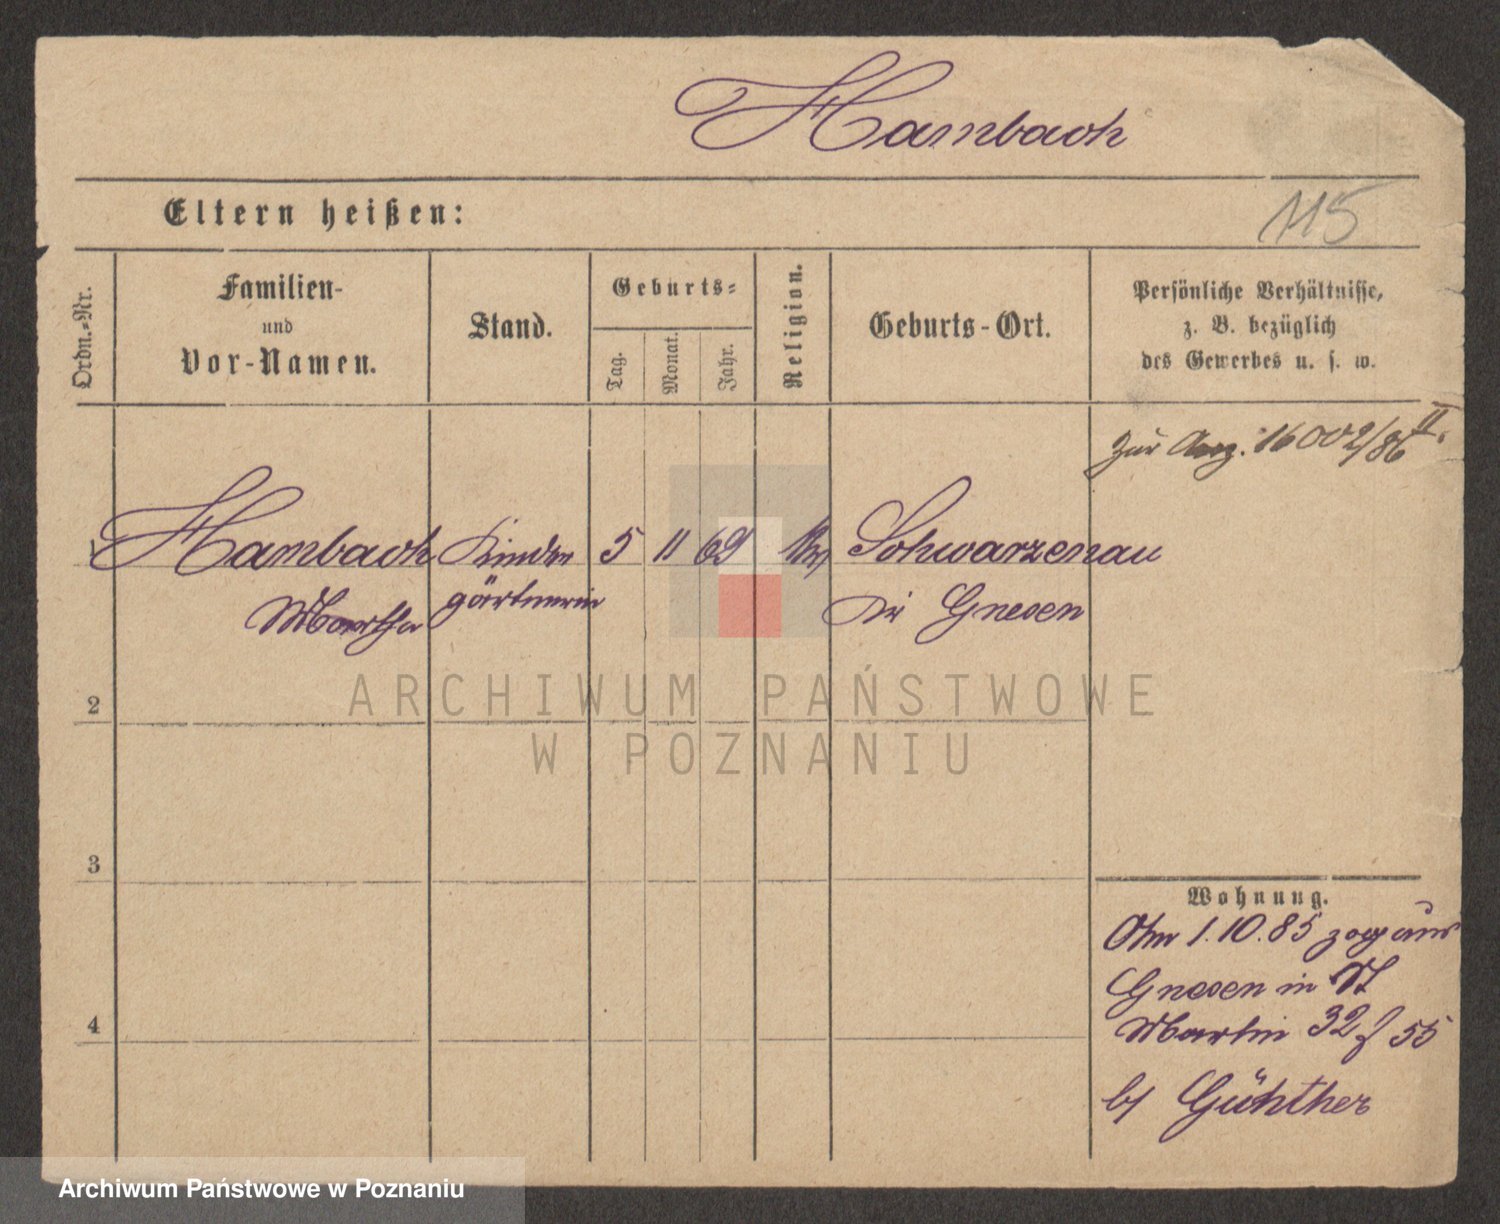 Hambach
Eltern heißen:
115
Ordn.-Nr.
Familien-
und
Vor-Namen.
Stand.
Geburts-
Tag.
Monat.
Jahr.
Religion.
Geburts-Ort.
Persönliche Verhältnisse,
z. B. bezüglich
des Gewerbes u. s. w.
zur Anz. 16002/86 II.
1 Hambach Kinder 5 11 69 Schwarzenau
Martha gärtnerin Gnesen
2
3
4
Wohnung.
Am 1.10.85 zog aus
Gnesen in St
Martin 32 f 55
b/ Günther
ARCHIWUM PAŃSTWOWE
W POZNANIU
Archiwum Państwowe w Poznaniu